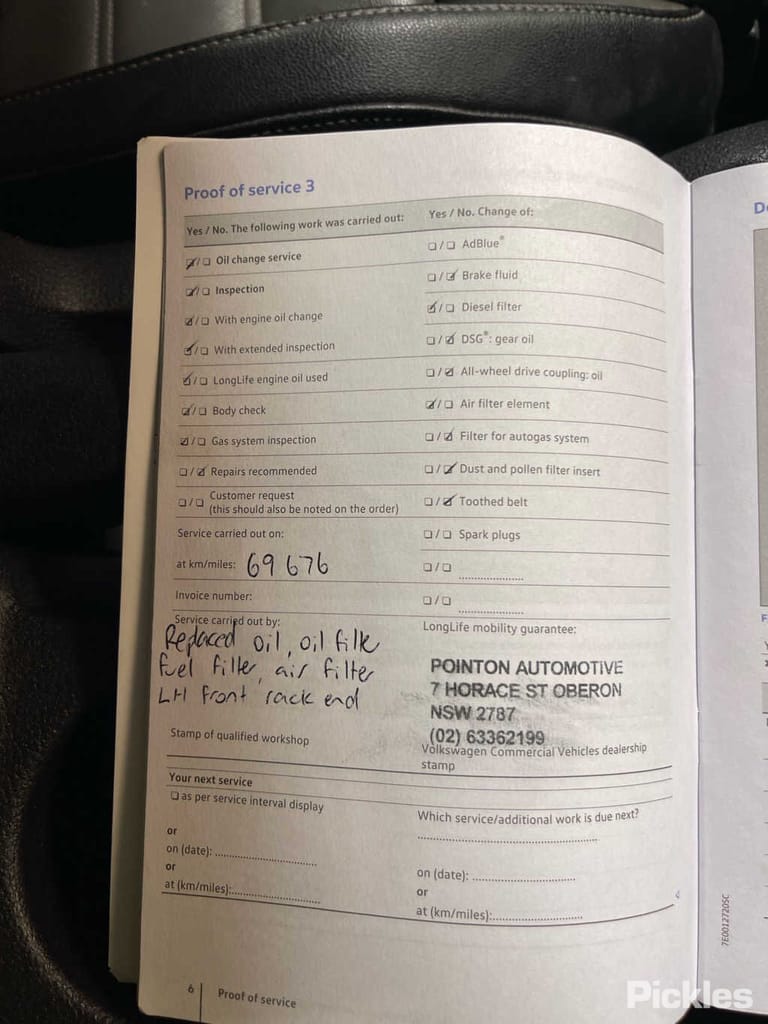 Proof of service 3
Yes / No. The following work was carried out:
☑/☐ Oil change service
☑/☐ Inspection
☑/☐ With engine oil change
☑/☐ With extended inspection
☑/☐ LongLife engine oil used
☑/☐ Body check
☑/☐ Gas system inspection
☐/☑ Repairs recommended
☐/☐ Customer request
(this should also be noted on the order)
Service carried out on:
at km/miles: 69 676
Invoice number:
Service carried out by:
Replaced oil, oil filte
fuel filter, air filter
LH front rack end
Stamp of qualified workshop
Yes / No. Change of:
☐/☐ AdBlue®
☐/☑ Brake fluid
☑/☐ Diesel filter
☐/☑ DSG®: gear oil
☐/☑ All-wheel drive coupling: oil
☑/☐ Air filter element
☐/☑ Filter for autogas system
☐/☑ Dust and pollen filter insert
☐/☑ Toothed belt
☐/☐ Spark plugs
☐/☐ ....................
☐/☐ ....................
LongLife mobility guarantee:
POINTON AUTOMOTIVE
7 HORACE ST OBERON
NSW 2787
(02) 63362199
Volkswagen Commercial Vehicles dealership
stamp
Your next service
☐ as per service interval display
or
on (date): ..............................
or
at (km/miles):..........................
Which service/additional work is due next?
..................................................
on (date): ..............................
or
at (km/miles):..........................
6 Proof of service
7E0012720SC
Pickles